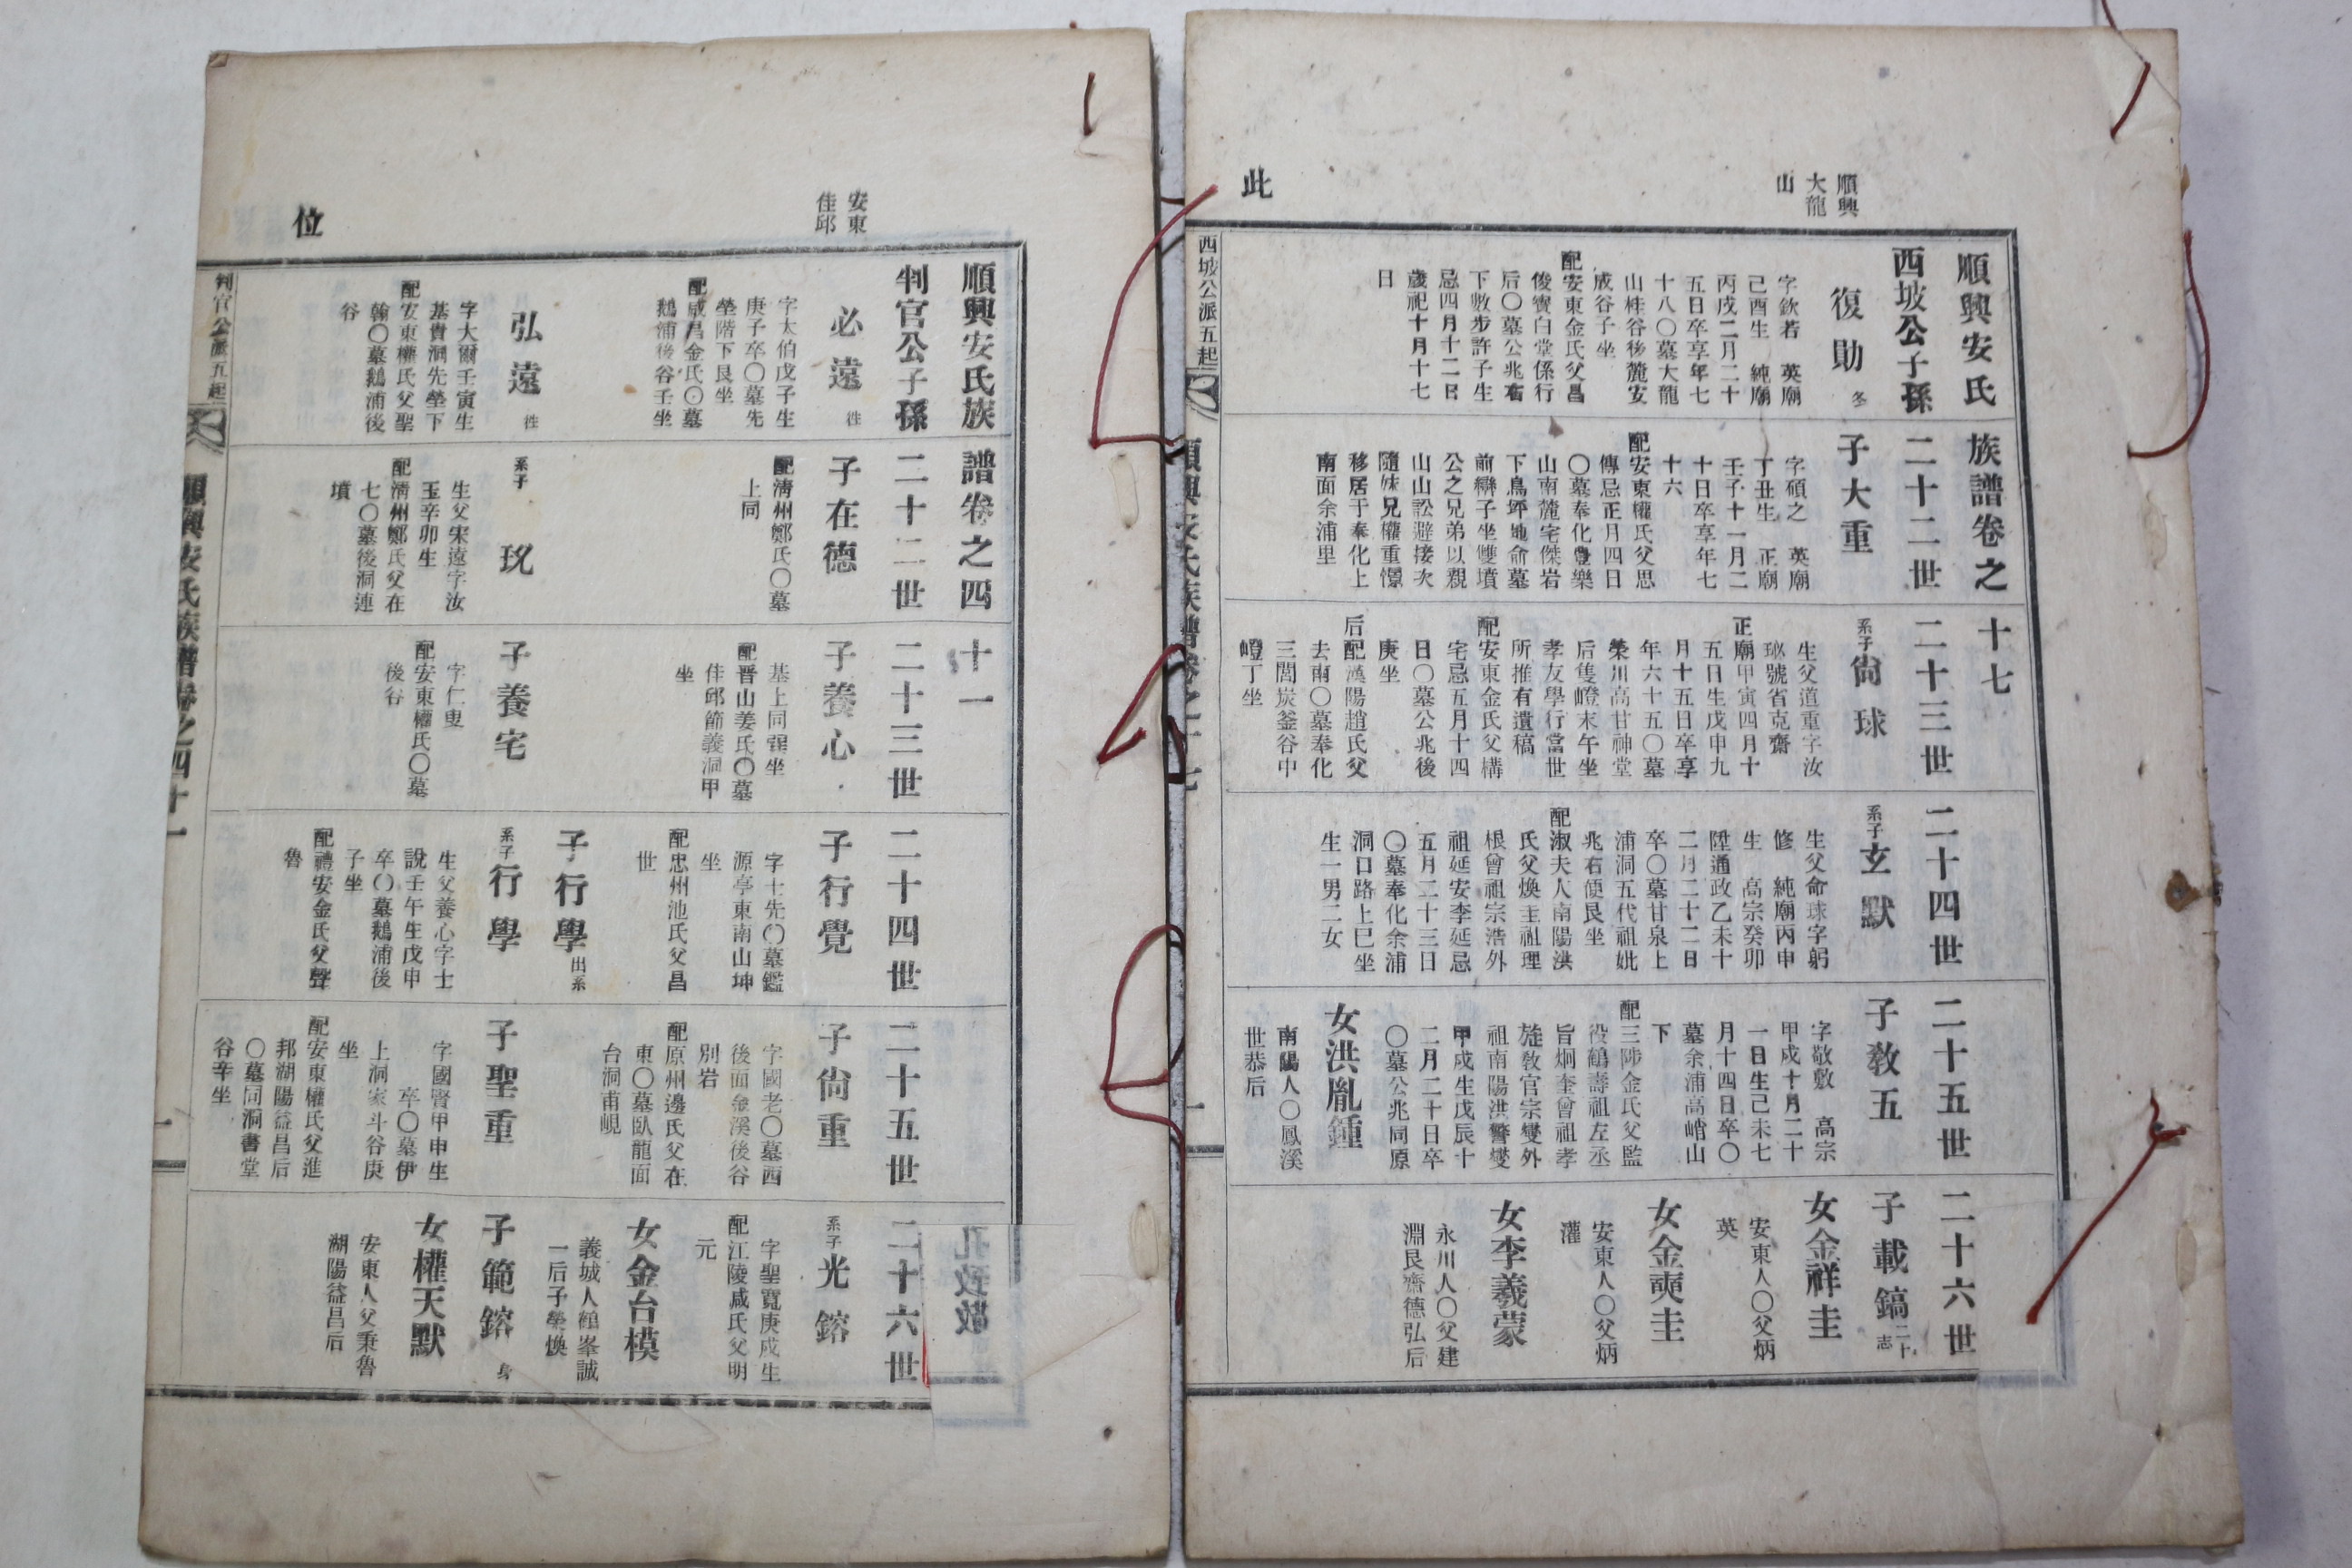 順興
大龍
山
此
順興安氏族譜卷之十七
西坡公子孫
二十二世
二十三世
二十四世
二十五世
二十六世
復助
字欽若 英廟
己酉生 純廟
丙戌二月二十
五日卒享年七
十八〇墓大龍
山桂谷後麓安
成谷子坐
配安東金氏父昌
俊實白堂係行
后〇墓公兆右
下數步許子生
忌四月十二日
歲祀十月十七
日
子大重
字碩之 英廟
丁丑生 正廟
壬子十一月二
十日卒享年七
十六
配安東權氏父思
傳忌正月四日
〇墓奉化豊樂
山南麓宅傑岩
下鳥坪地命墓
前巒子坐雙墳
公之兄弟以親
山山訟避接次
隨妹兄權重憬
移居于奉化上
南面余浦里
系子
尙球
生父道重字汝
珌號省克齋
正廟甲寅四月十
五日生戊申九
月十五日卒享
年六十五〇墓
榮川高甘神堂
后隻嶝末午坐
孝友學行當世
所推有遺稿
配安東金氏父構
宅忌五月十四
日〇墓公兆後
庚坐
后配漢陽趙氏父
去南〇墓奉化
三閭炭釜谷中
嶝丁坐
系子
玄默
生父命球字躬
修 純廟丙申
生 高宗癸卯
陞通政乙未十
二月二十二日
卒〇墓甘泉上
浦洞五代祖妣
兆右便艮坐
配淑夫人南陽洪
氏父煥圭祖理
根曾祖宗浩外
祖延安李延忌
五月二十三日
〇墓奉化余浦
洞口路上巳坐
生一男二女
子敎五
字敬敷 高宗
甲戌十月二十
一日生己未七
月十四日卒〇
墓余浦高峭山
下
配三陟金氏父監
役鶴壽祖左丞
旨炯奎曾祖孝
旌敎官宗燮外
祖南陽洪警燮
甲戌生戊辰十
二月二十日卒
〇墓公兆同原
女洪胤鍾
南陽人〇鳳溪
世恭后
子載鎬
女金祥圭
安東人〇父炳
英
女金奭圭
安東人〇父炳
灌
女李羲蒙
永川人〇父建
淵艮齋德弘后
西坡公派五起
安東
佳邱
位
順興安氏族譜卷之四十一
判官公子孫
二十二世
二十三世
二十四世
二十五世
二十六世
必遠
字太伯戊子生
庚子卒〇墓先
塋階下艮坐
配咸昌金氏〇墓
鵝浦後谷壬坐
弘遠
字大爾壬寅生
基貴洞先塋下
配安東權氏父聖
翰〇墓鵝浦後
谷
子在德
配淸州鄭氏〇墓
上同
系子
玧
生父宋遠字汝
玉辛卯生
配淸州鄭氏父在
七〇墓後洞連
墳
子養心
基上同巽坐
配晋山姜氏〇墓
佳邱節義洞甲
坐
子養宅
字仁叟
配安東權氏〇墓
後谷
子行覺
字士先〇墓鑑
源亭東南山坤
坐
配忠州池氏父昌
世
子行學
出系
系子
行學
生父養心字士
說壬午生戊申
卒〇墓鵝浦後
子坐
配禮安金氏父聲
魯
子尙重
字國老〇墓西
後面金溪後谷
別岩
配原州邊氏父在
東〇墓臥龍面
台洞甫峴
子聖重
字國賢甲申生
卒〇墓伊
上洞家斗谷庚
坐
配安東權氏父進
邦湖陽益昌后
〇墓同洞書堂
谷辛坐
系子
光鎔
字聖寬庚戌生
配江陵咸氏父明
元
女金台模
義城人鶴峯誠
一后子榮煥
子範鎔
女權天默
安東人父秉魯
湖陽益昌后
判官公派五起
順興安氏族譜卷之四十一